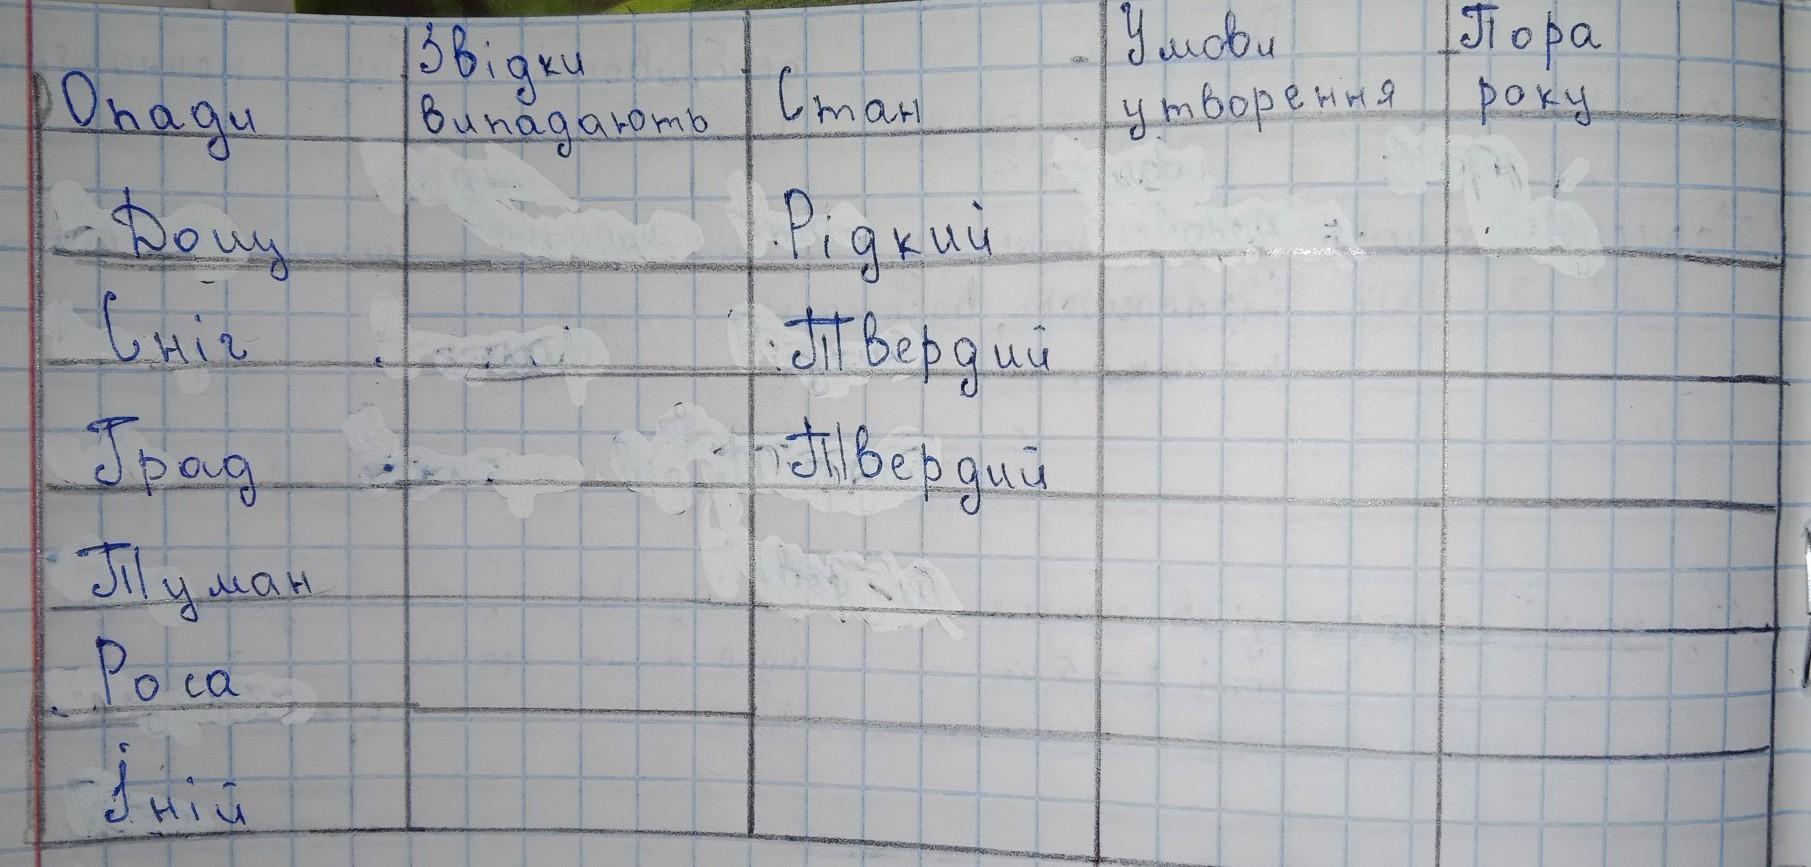 Опади
Звідки
випадають
Стан
Умови
утворення
Пора
року
Дощ
Рідкий
Сніг
Твердий
Град
Твердий
Туман
Роса
Іній